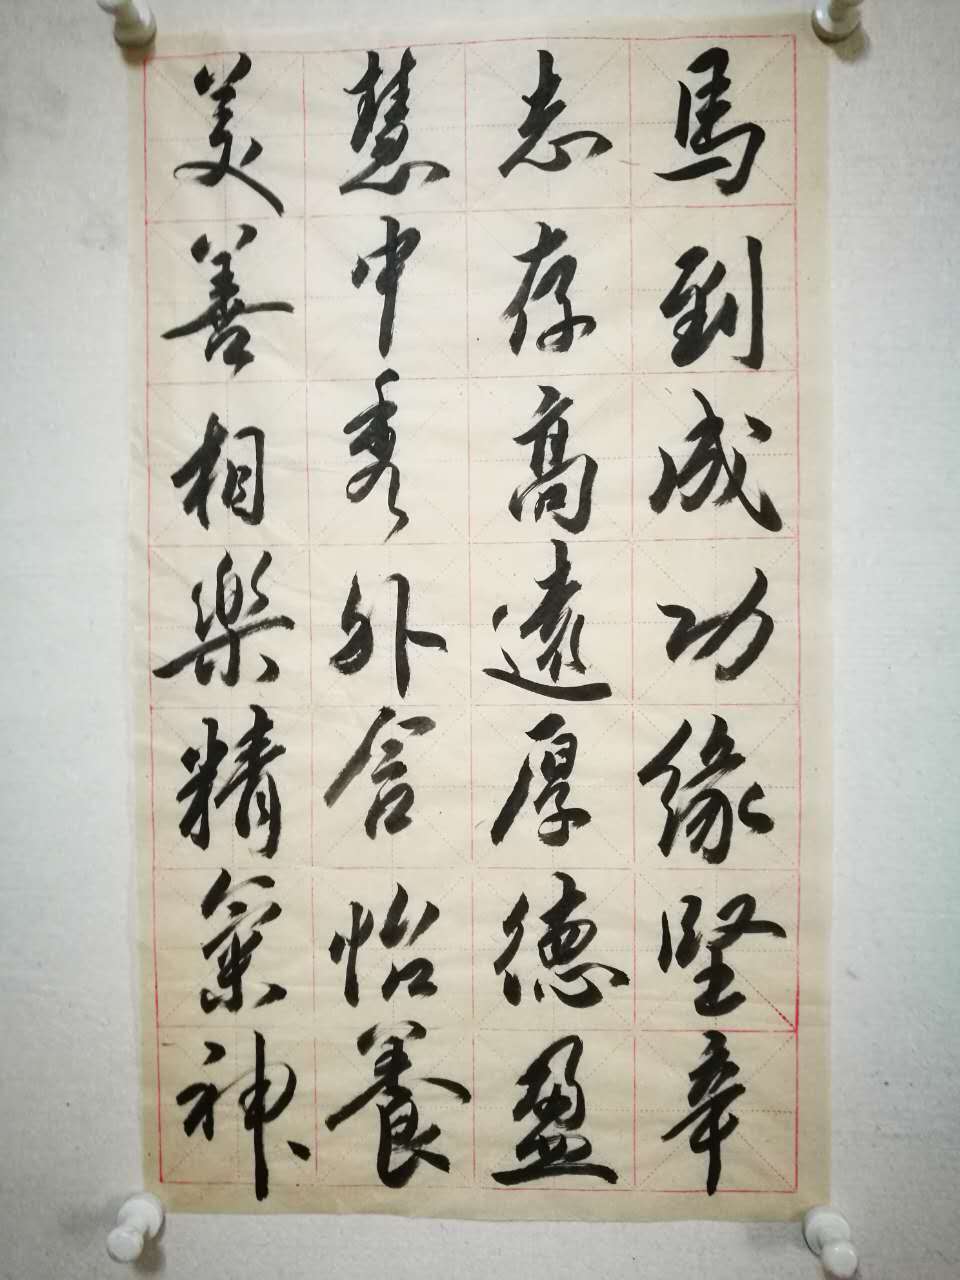 馬到成功緣堅辛
志存高遠厚德盈
慧中秀外含怡養
美善相樂精氣神